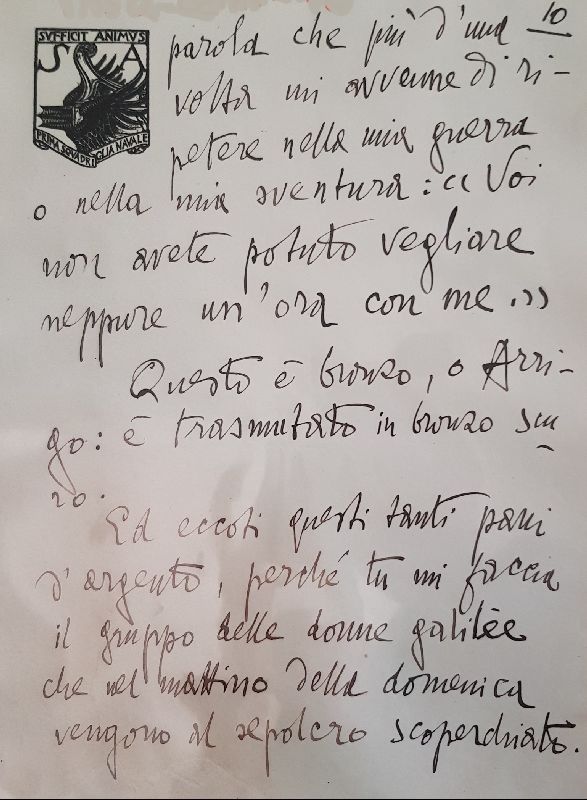 10
SVFFICIT ANIMVS
S A
PRIMA SQVADRIGLIA NAVALE
parola che più d'una
volta mi avvenne di ri-
petere nella mia guerra
o nella mia sventura: << Voi
non avete potuto vegliare
neppure un'ora con me. >>
Questo è bronzo, o Arri-
go: è trasmutato in bronzo scu
ro.
Ed eccoti questi tanti pani
d'argento, perché tu mi faccia
il gruppo delle donne galilèe
che nel mattino della domenica
vengono al sepolcro scoperchiato.